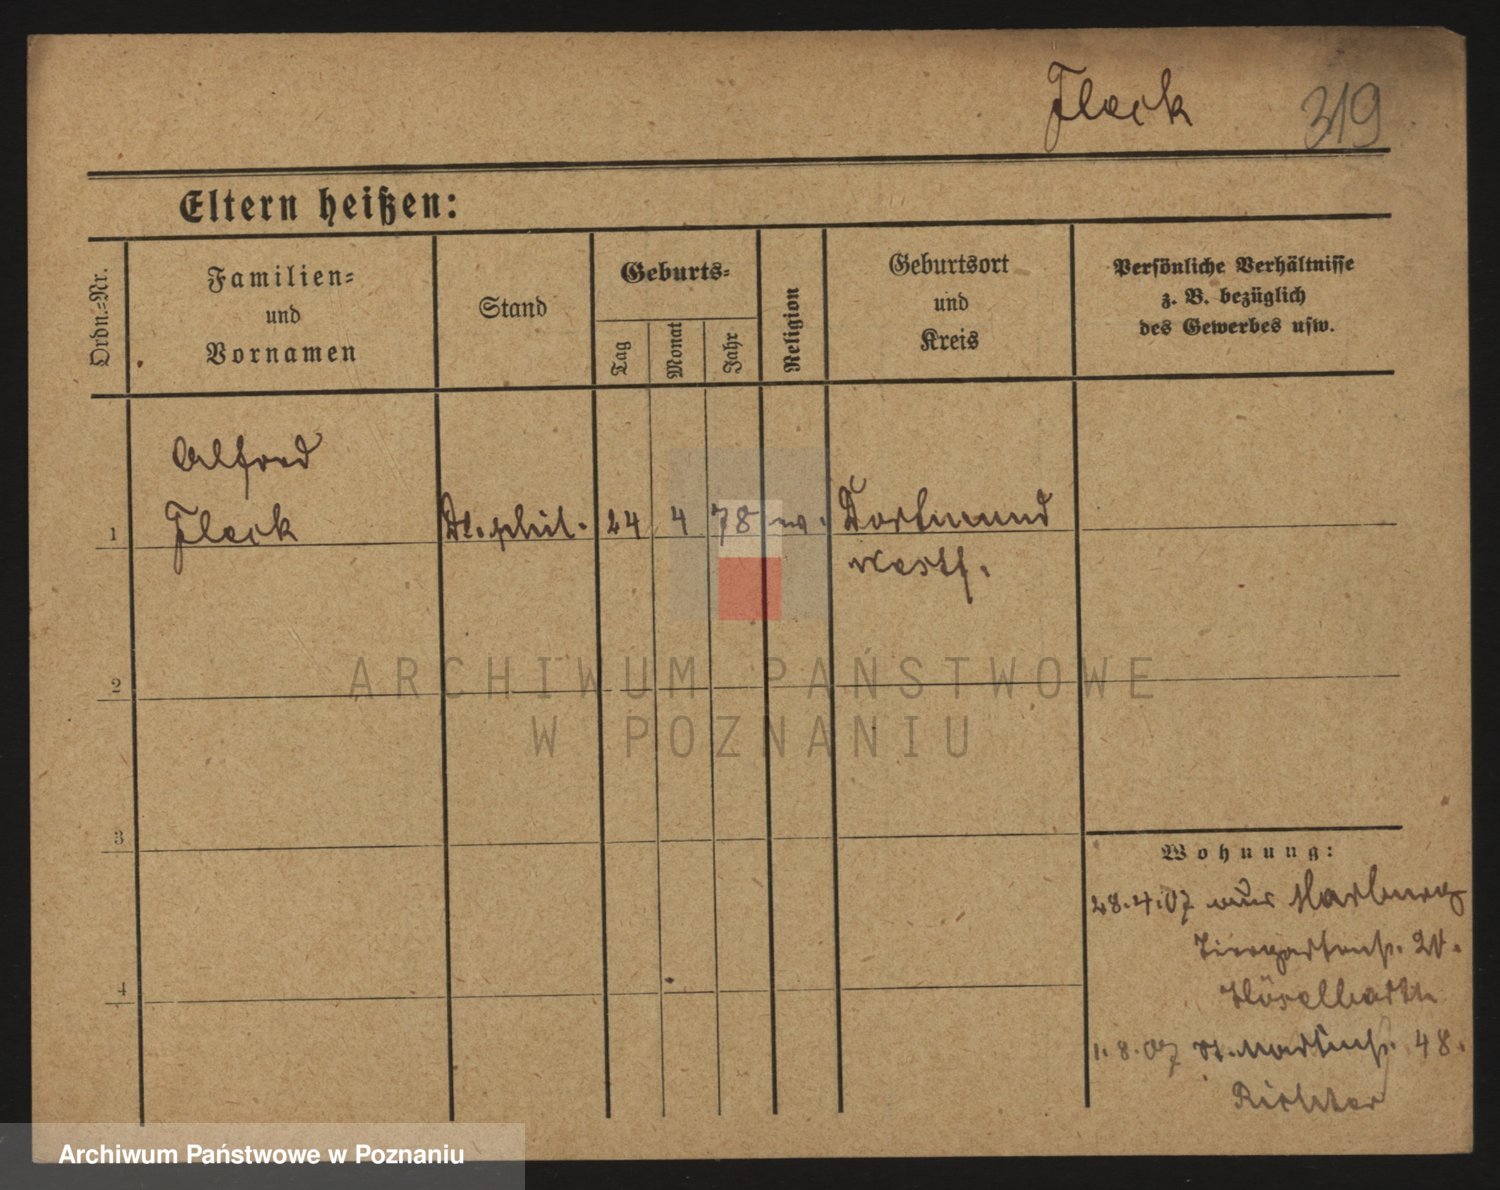 Fleck 319
Eltern heißen:
Ordn.=Nr.
Familien=
und
Vornamen
Stand
Geburts=
Tag
Monat
Jahr
Religion
Geburtsort
und
Kreis
Persönliche Verhältnisse
z. B. bezüglich
des Gewerbes usw.
Alfred
1 Fleck Dr. phil. 24 4 78 Dortmund
Westf.
2
ARCHIWUM PAŃSTWOWE
W POZNANIU
3
Wohnung:
28.4.07 aus Marburg
Tiergartenstr.
4
1.8.07 St. Martinstr. 48.
Richter
Archiwum Państwowe w Poznaniu